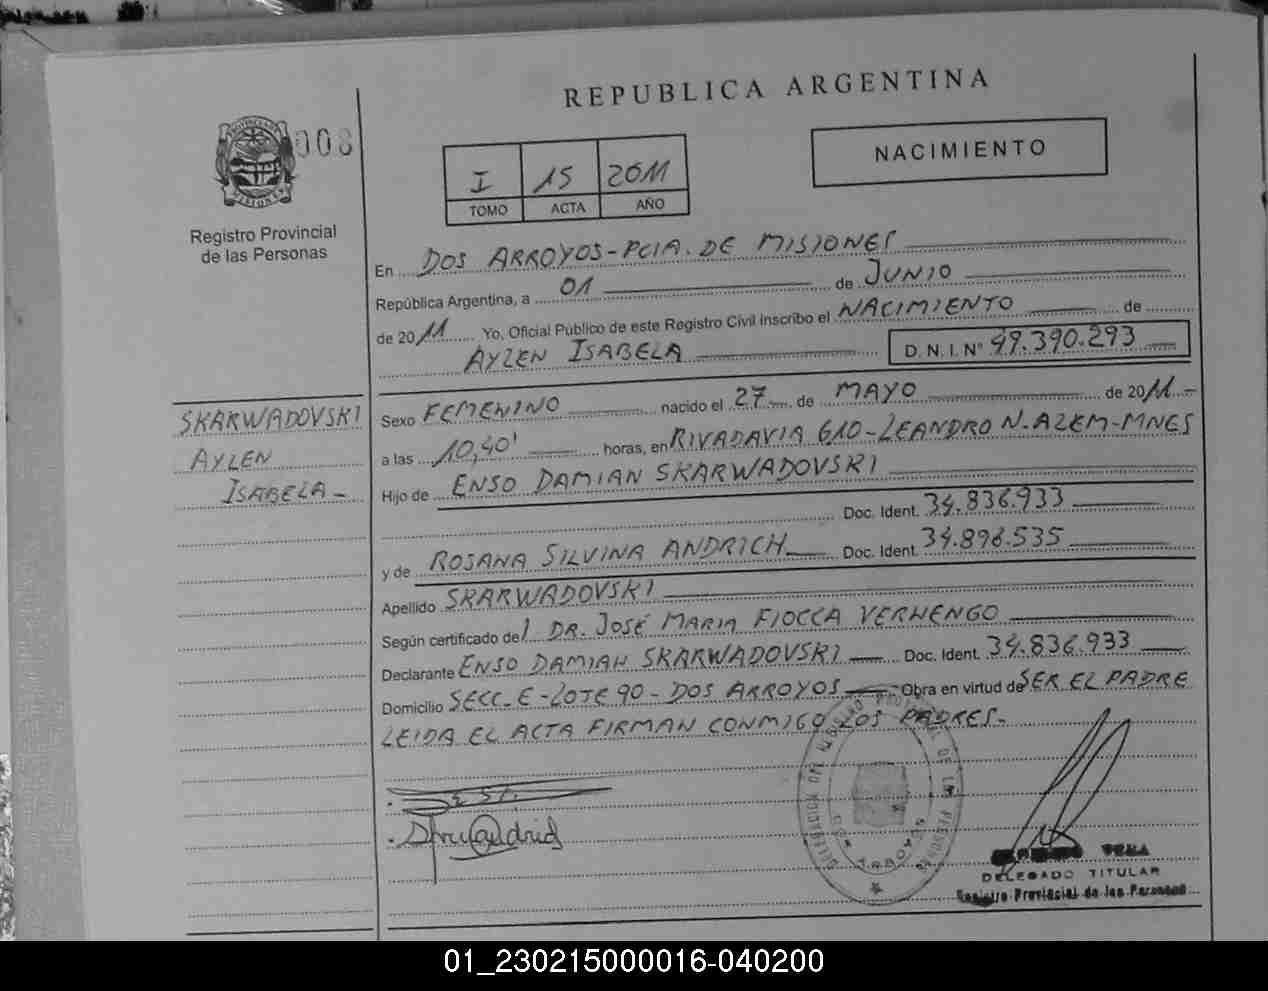 REPUBLICA ARGENTINA
008
NACIMIENTO
I 15 2011
TOMO ACTA AÑO
Registro Provincial
de las Personas
En DOS ARROYOS-PCIA. DE MISIONES
República Argentina, a 01 de JUNIO
de 2011 Yo, Oficial Público de este Registro Civil inscribo el NACIMIENTO de
AYLEN ISABELA D. N. I. N° 49.390.293
SKARWADOVSKI
AYLEN
ISABELA
Sexo FEMENINO nacido el 27 de MAYO de 2011.-
a las 10,40' horas, en RIVADAVIA 610-LEANDRO N. ALEM-MNES
Hijo de ENSO DAMIAN SKARWADOVSKI
Doc. Ident. 34.836.933
y de ROSANA SILVINA ANDRICH Doc. Ident. 34.896.535
Apellido SKARWADOVSKI
Según certificado del DR. JOSÉ MARIA FIOCCA VERNENGO
Declarante ENSO DAMIAN SKARWADOVSKI Doc. Ident. 34.836.933
Domicilio SECC. E-LOTE 90-DOS ARROYOS Obra en virtud de SER EL PADRE
LEIDA EL ACTA FIRMAN CONMIGO LOS PADRES-
VERA
DELEGADO TITULAR
Registro Provincial de las Personas
01_230215000016-040200